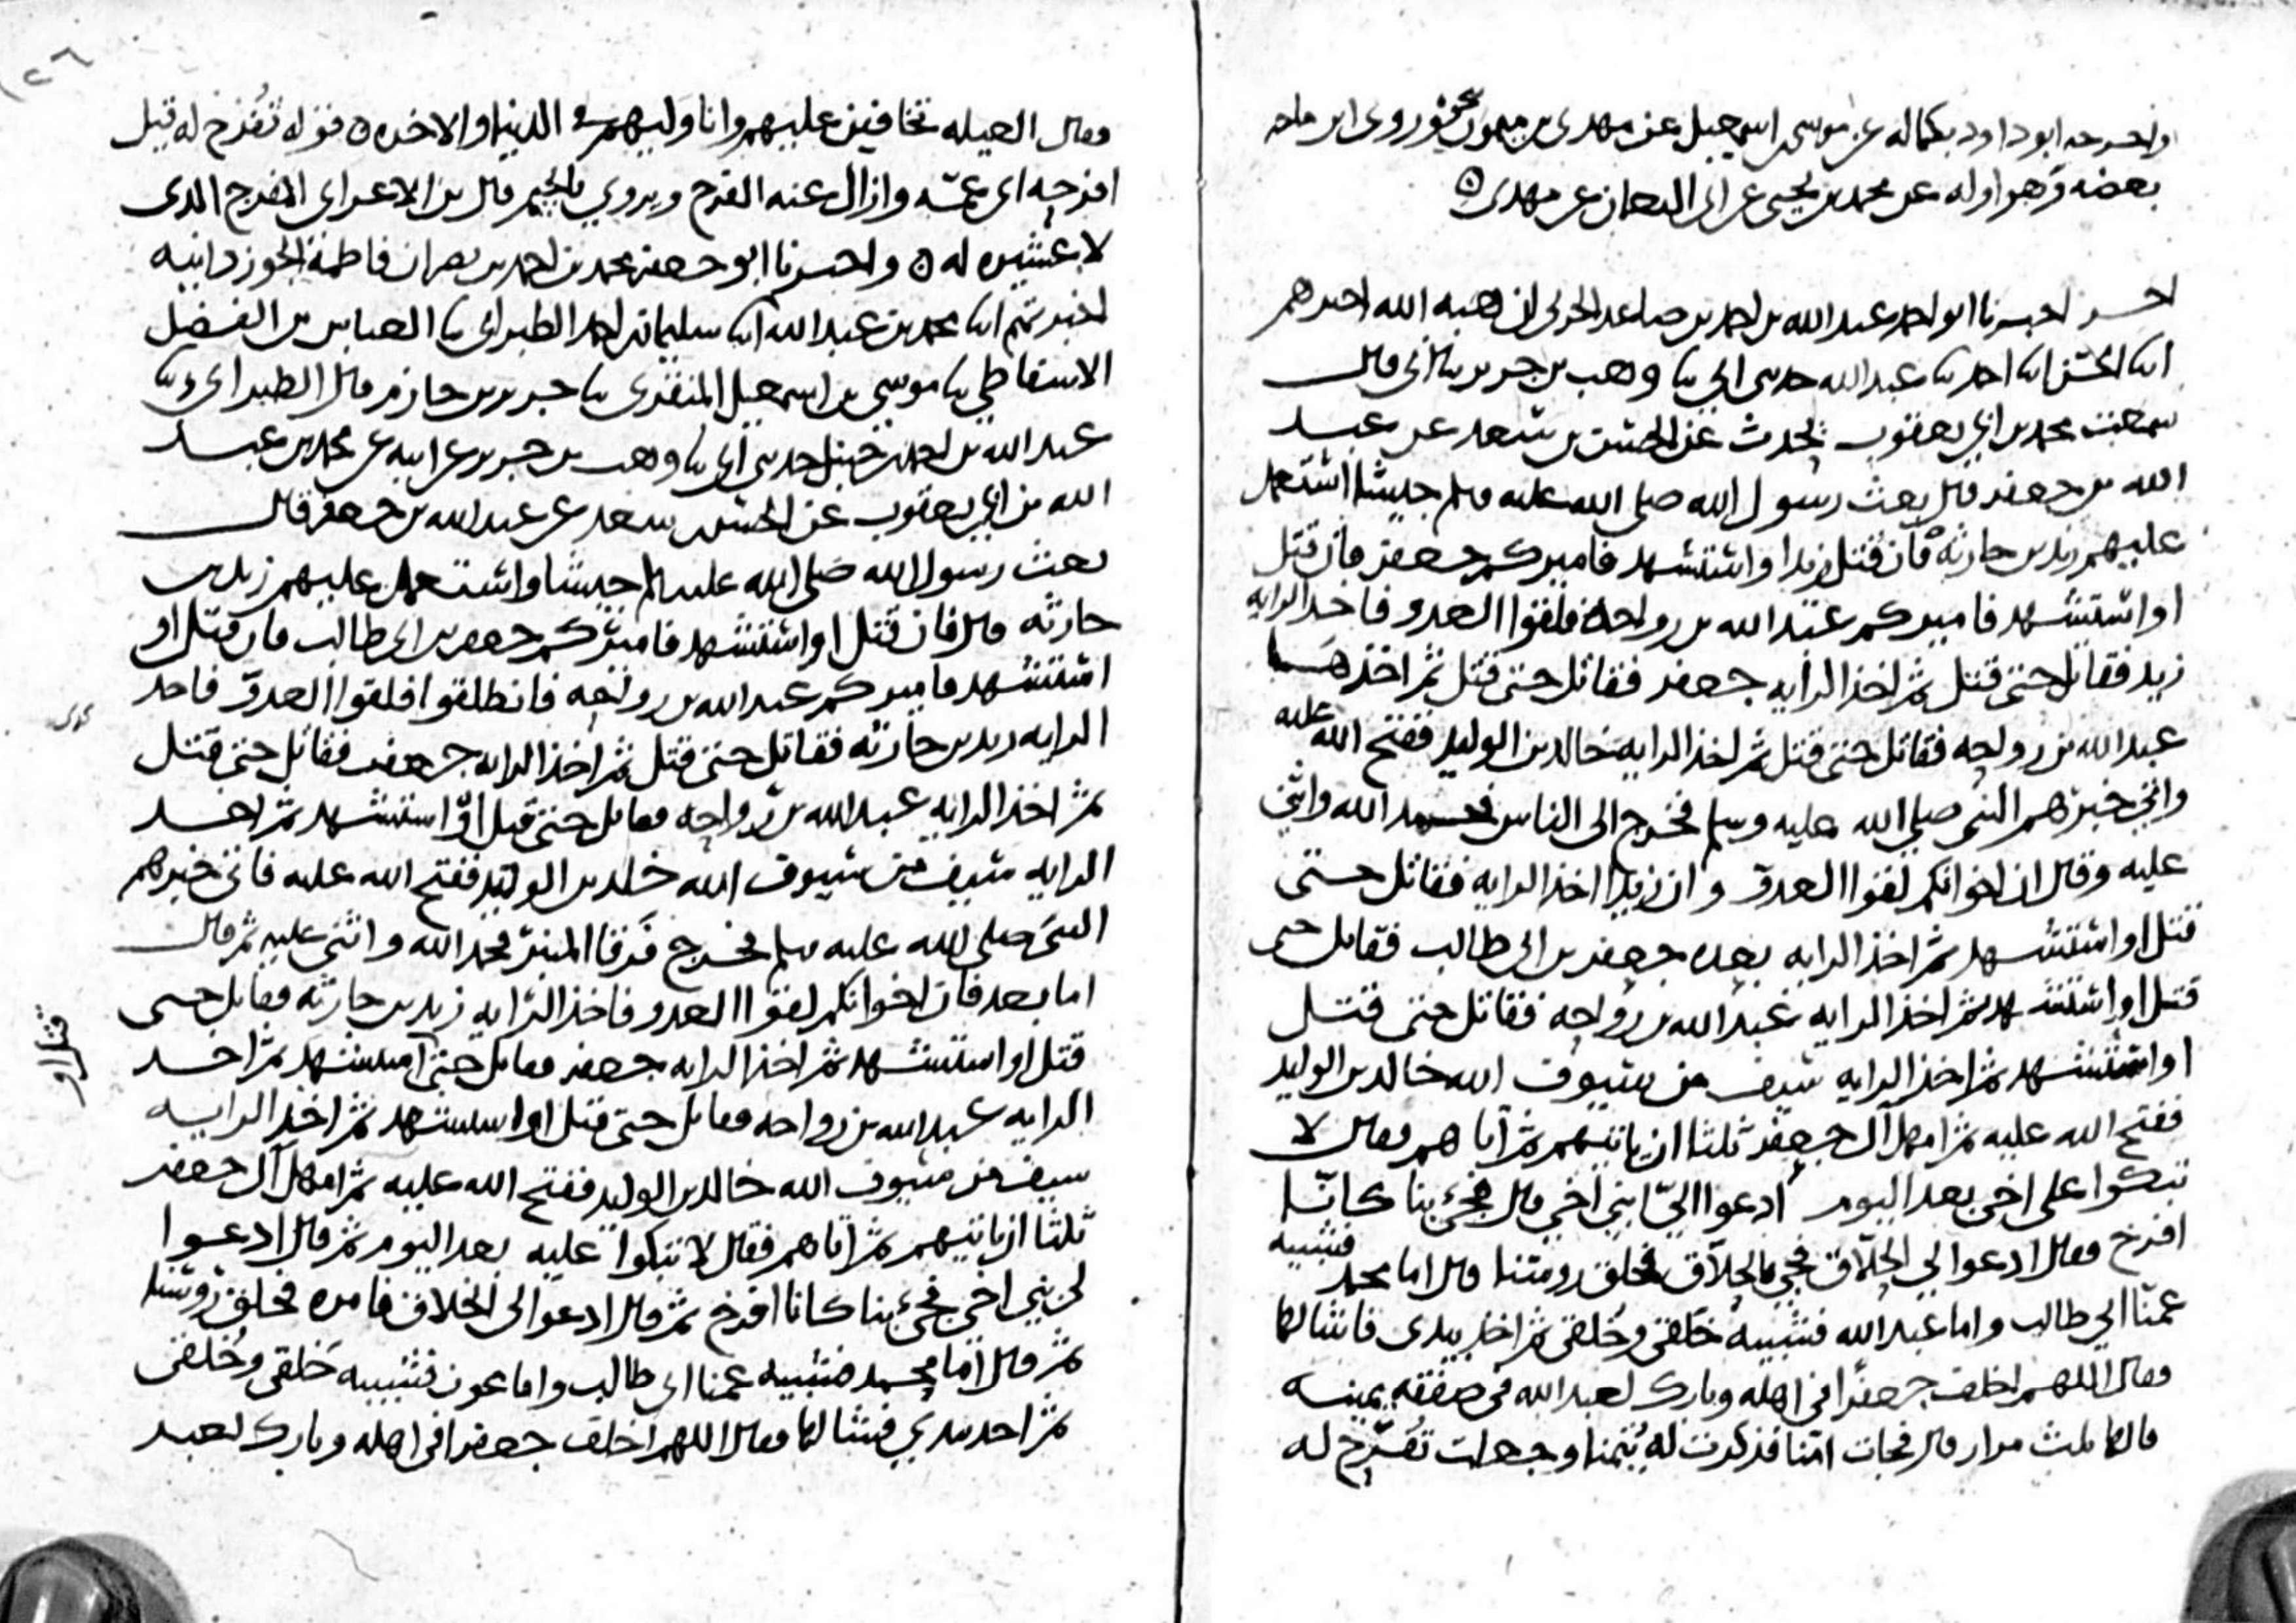 واخرجه ابو داود بكماله عن موسى بن اسمعيل عن مهدى بن ميمون نحوه وروى ابن ماجه
بعضه وهو اوله عن محمد بن يحيى عن ابى النعمان عن مهدى ه
اخر اخبرنا ابو احمد عبد الله بن احمد بن صاعد الحربى ان هبة الله اخبرهم
ابنا الحسن ابنا احمد ثنا عبد الله حدثنى ابى ثنا وهب بن جرير ثنا ابى قال
سمعت محمد بن ابى يعقوب يحدث عن الحسن بن سعد عن عبد
الله بن جعفر قال بعث رسول الله صلى الله عليه وسلم جيشا استعمل
عليهم زيد بن حارثة فان قتل زيد او استشهد فاميركم جعفر فان قتل
او استشهد فاميركم عبد الله بن رواحة فلقوا العدو فاخذ الراية
زيد فقاتل حتى قتل ثم اخذ الراية جعفر فقاتل حتى قتل ثم اخذها
عبد الله بن رواحه فقاتل حتى قتل ثم اخذ الرايه خالد بن الوليد ففتح الله عليه
واتى خبرهم النبى صلى الله عليه وسلم فخرج الى الناس فحمد الله واثنى
عليه وقال ان اخوانكم لقوا العدو وان زيدا اخذ الرايه فقاتل حتى
قتل او استشهد ثم اخذ الرايه بعده جعفر بن ابى طالب فقاتل حتى
قتل او استشهد ثم اخذ الرايه عبد الله بن رواحه فقاتل حتى قتل
او استشهد ثم اخذ الرايه سيف من سيوف الله خالد بن الوليد
ففتح الله عليه ثم امهل آل جعفر ثلثا ان ياتيهم ثم اتاهم فقال لا
تبكوا على اخى بعد اليوم ادعوا الىّ ابنى اخى قال فجئ بنا كانّا
افرخ فقال ادعوا لى الحلاق فجئ بالحلاق فحلق روسنا قال اما محمد فشبيه
عمنا ابى طالب واما عبد الله فشبيه خلقى وخلقى ثم اخذ بيدى فاشالها
فقال اللهم اخلف جعفرا فى اهله وبارك لعبد الله فى صفقه يمينه
قالها ثلث مرار قال فجات امنا فذكرت له يتمنا وجعلت تفرح له
فقال العيله تخافين عليهم وانا وليهم فى الدنيا والاخره ه قوله تفرح له قيل
افرحه اى غمّه وازال عنه الفرح ويروى بالجيم قال بن الاعرابى المفرج الذى
لا عشيره له ه واخبرنا ابو جعفر محمد بن احمد بن نصر ان فاطمة الجوزدانيه
اخبرتهم ابنا محمد بن عبد الله ابنا سليمان بن احمد الطبرانى ثنا العباس بن الفضل
الاسفاطى ثنا موسى بن اسمعيل المنقرى ثنا جرير بن حازم قال الطبرانى وثنا
عبد الله بن احمد بن حنبل حدثنى ابى ثنا وهب بن جرير عن ابيه عن محمد بن عبد
الله بن ابى يعقوب عن الحسن بن سعد عن عبد الله بن جعفر قال
بعث رسول الله صلى الله عليه وسلم جيشا واستعمل عليهم زيد بن
حارثه قال فان قتل او استشهد فاميركم جعفر بن ابى طالب فان قتل او
استشهد فاميركم عبد الله بن رواحه فانطلقوا فلقوا العدوّ فاخذ
الرايه زيد بن حارثه فقاتل حتى قتل ثم اخذ الرايه جعفر فقاتل حتى قتل
ثم اخذ الرايه عبد الله بن رواحه فقاتل حتى قتل او استشهد ثم اخذ
الرايه سيف من سيوف الله خلد بن الوليد ففتح الله عليه فاتى خبرهم
النبى صلى الله عليه وسلم فخرج فرقا المنبر فحمد الله واثنى عليه ثم قال
اما بعد فان اخوانكم لقوا العدو فاخذ الرايه زيد بن حارثه فقاتل حتى
قتل او استشهد ثم اخذ الرايه جعفر فقاتل حتى استشهد ثم اخذ
قتل او
الرايه عبد الله بن رواحه فقاتل حتى قتل او استشهد ثم اخذ الرايه
سيف من سيوف الله خالد بن الوليد ففتح الله عليه ثم امهل آل جعفر
ثلثا ان ياتيهم ثم اتاهم فقال لا تبكوا عليه بعد اليوم ثم قال ادعوا
لى بنى اخى فجئ بنا كانا افرخ ثم قال ادعوا لى الحلاق فامره فحلق روسنا
ثم قال اما محمد فشبيه عمنا ابى طالب واما عون فشبيه خلقى وخلقى
ثم اخذ بيدى فشالها فقال اللهم اخلف جعفرا فى اهله وبارك لعبد